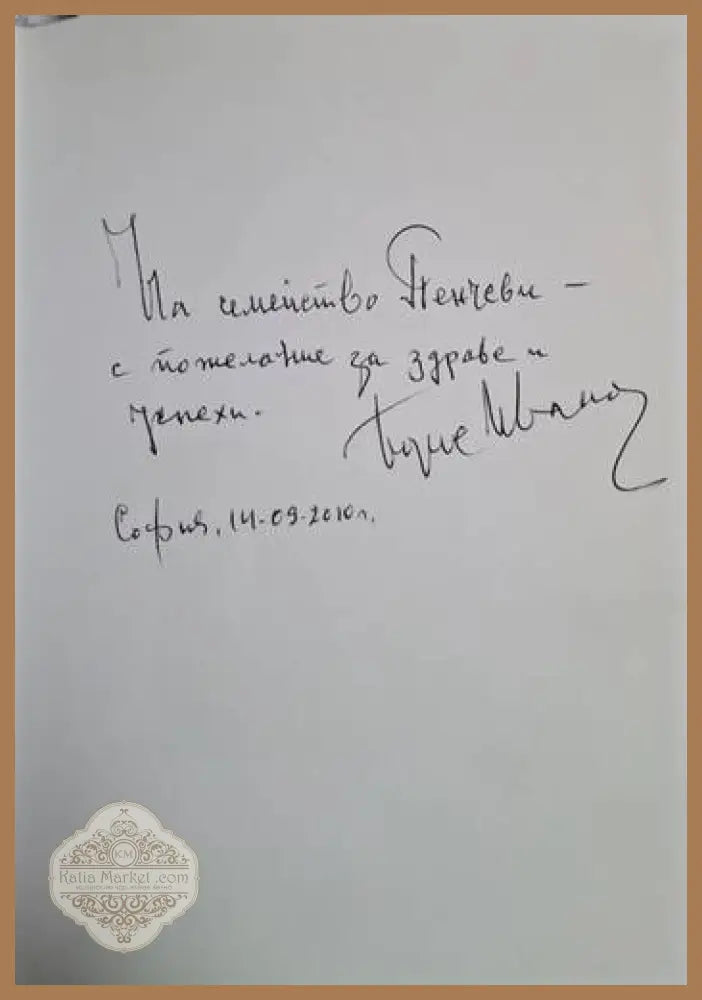 На семейство Пенчеви –
с пожелание за здраве и
успехи.
София, 14.09.2010г.
KM
Katia Market .com